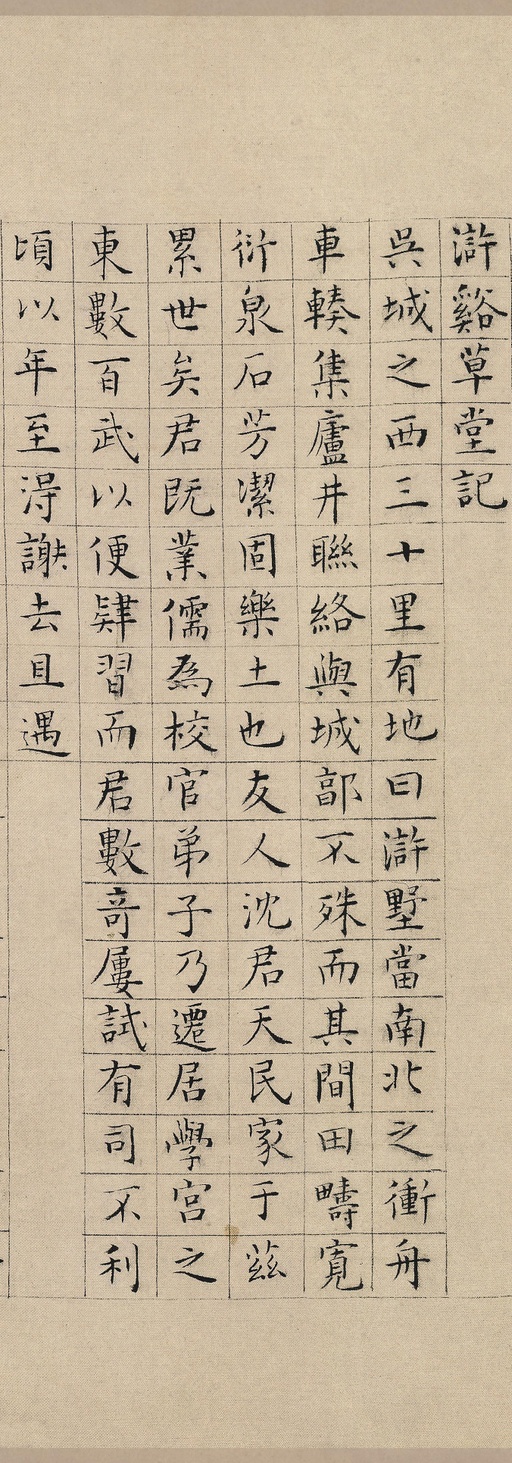 滸谿草堂記
吳城之西三十里有地曰滸墅當南北之衝舟
車轃集廬井聯絡與城郭不殊而其間田疇寬
衍泉石芳潔固樂土也友人沈君天民家于茲
累世矣君既業儒為校官弟子乃遷居學宮之
東數百武以便肄習而君數奇屢試有司不利
頃以年至得謝去且遇